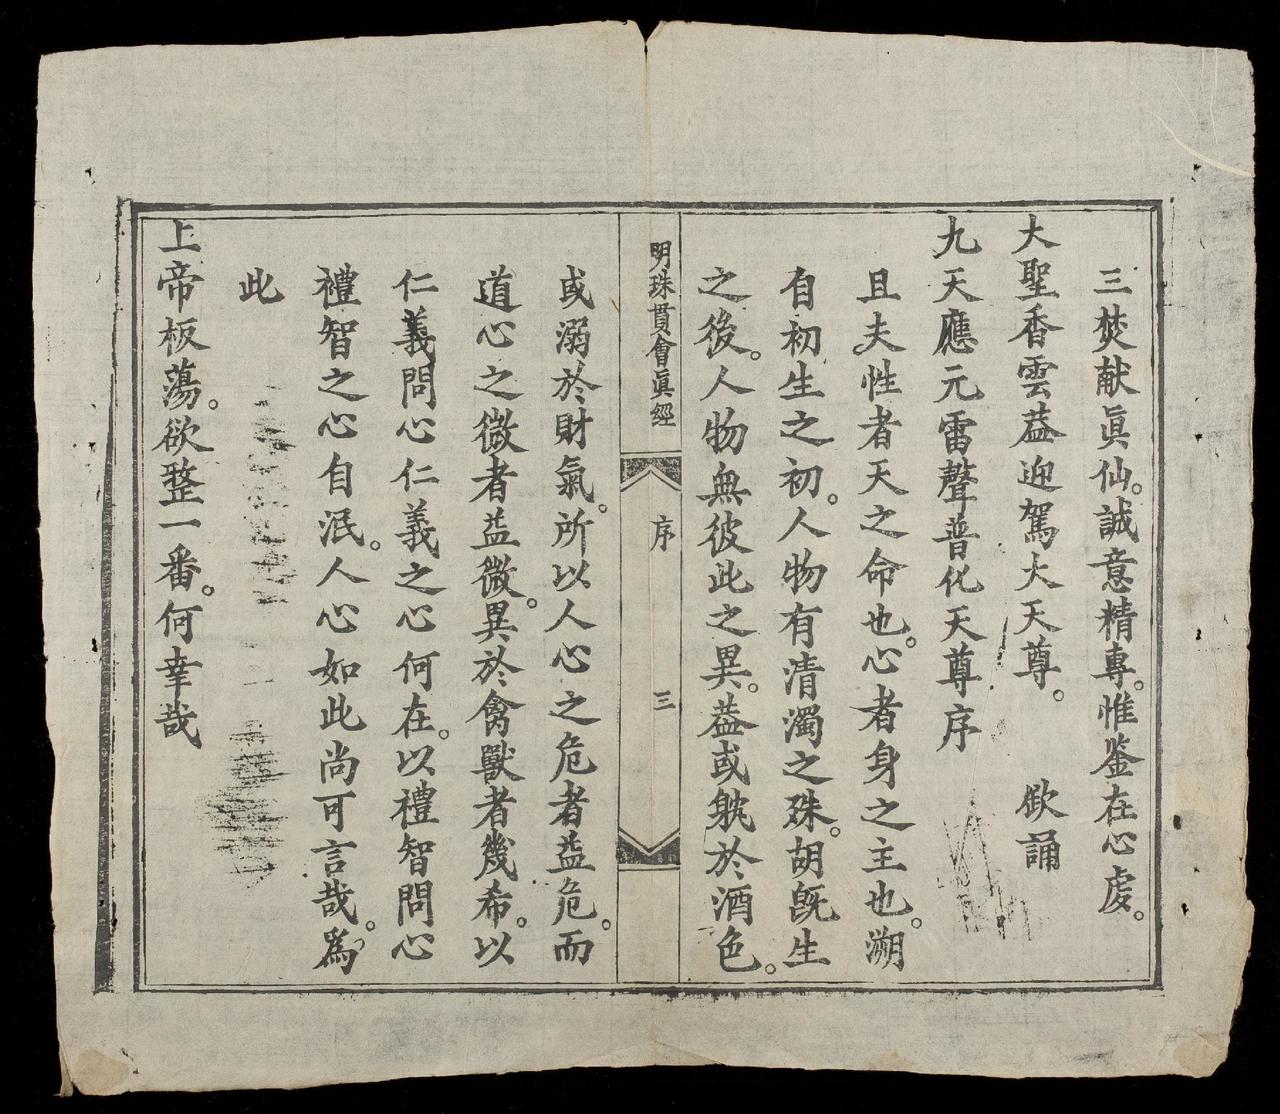 三焚献眞仙。誠意精專。惟鉴在心虔。
大聖香雲蓋迎駕大天尊。 欲誦
九天應元雷聲普化天尊序
且夫性者天之命也。心者身之主也。溯
自初生之初。人物有清濁之殊。胡既生
之後。人物無彼此之異。葢或躭於酒色。
明珠貫會眞經 序 三
或溺於財氣。所以人心之危者益危。而
道心之微者益微。異於禽獸者幾希。以
仁義問心仁義之心何在。以禮智問心
禮智之心自泯。人心如此尚可言哉。爲
此
上帝板蕩。欲整一番。何幸哉